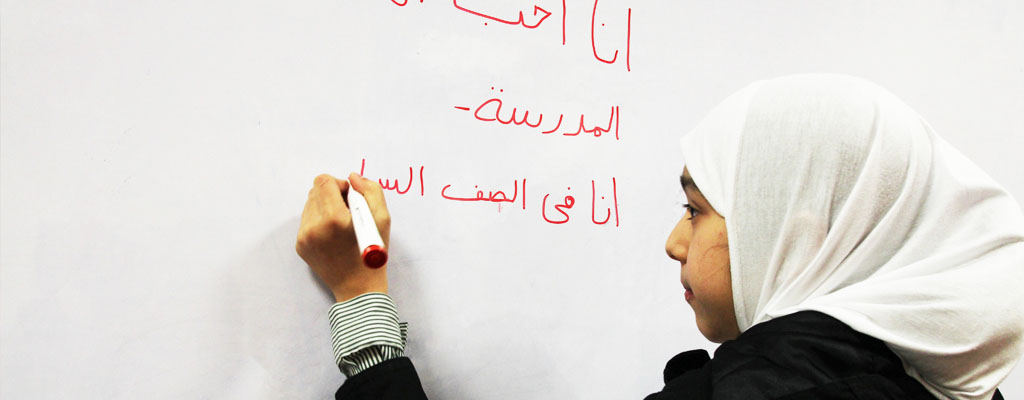 انا احب
المدرسة -
انا فى الصف